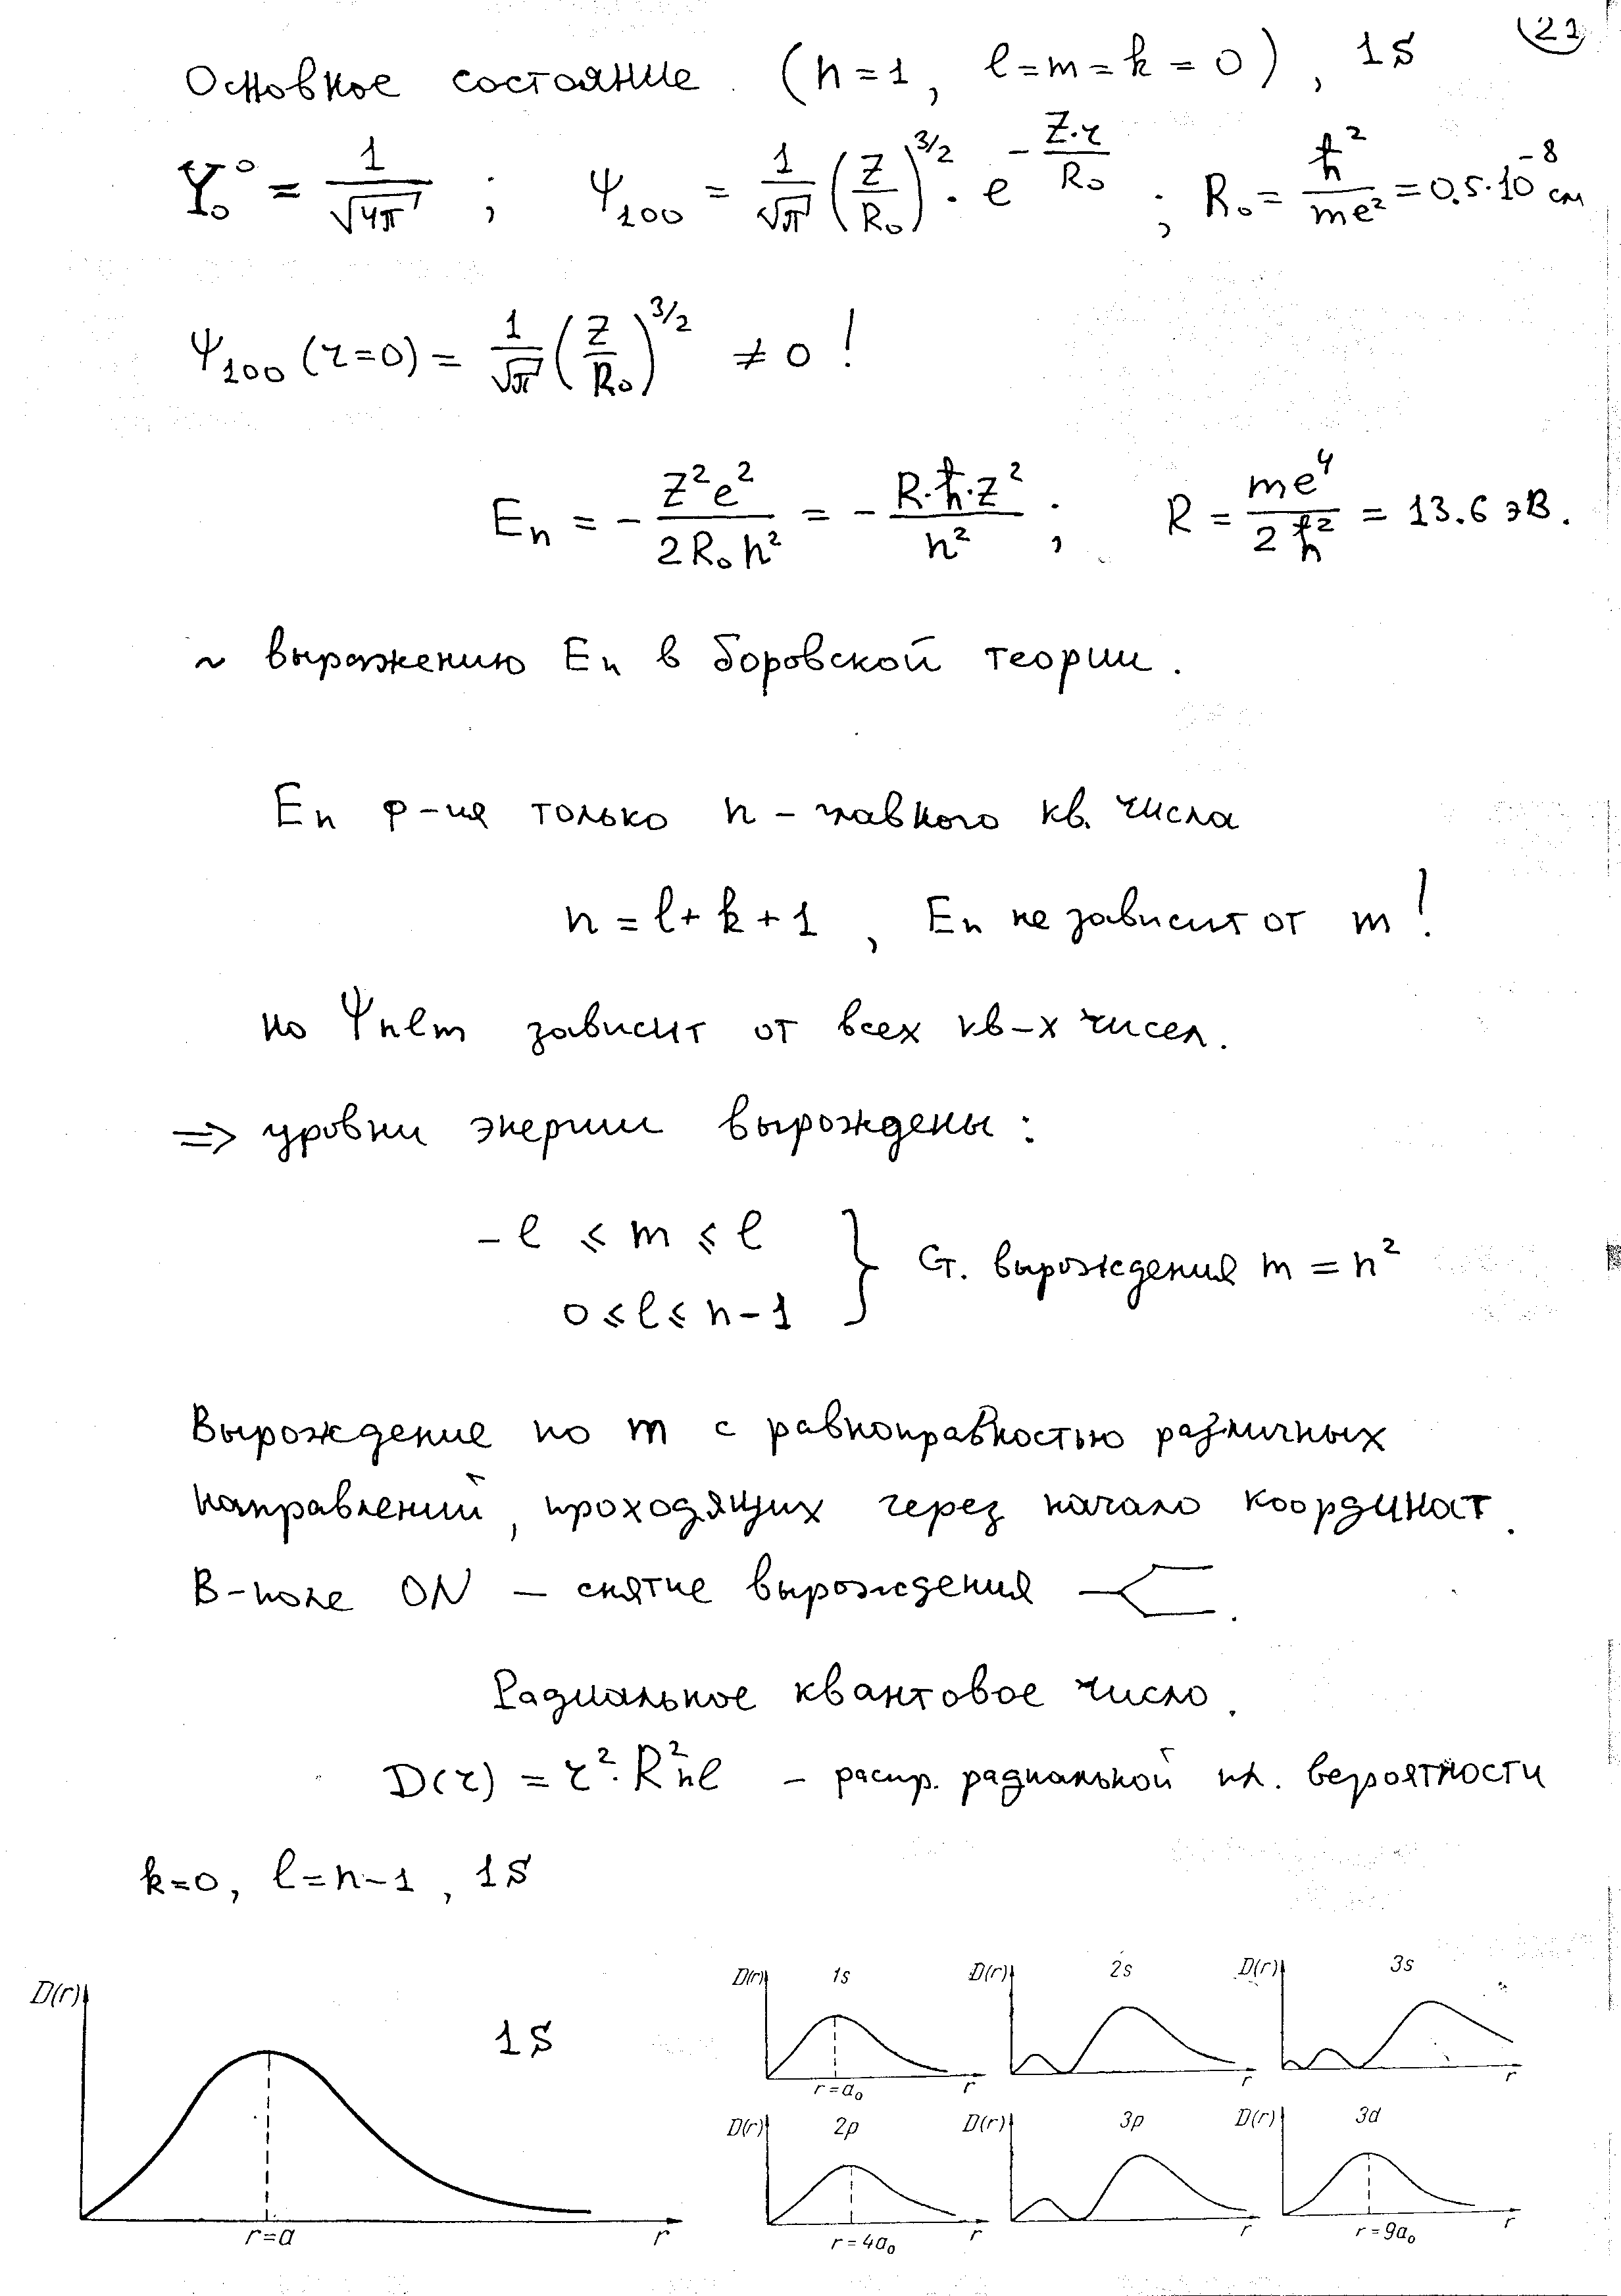 21
Основное состояние. (n=1, ℓ=m=k=0), 1S
Y₀⁰ = 1/√4π ; Ψ₁₀₀ = 1/√π (Z/R₀)^3/2 · e^(-Z·r/R₀) ; R₀ = ħ²/me² = 0.5·10⁻⁸ см
Ψ₁₀₀ (r=0) = 1/√π (Z/R₀)^3/2 ≠ 0 !
Eₙ = - Z²e²/2R₀n² = - R·ħ·Z²/n² ; R = me⁴/2ħ² = 13.6 эВ.
~ выражению Eₙ в боровской теории.
Eₙ ф-ия только n - главного кв. числа
n = ℓ + k + 1 , Eₙ не зависит от m !
но Ψnℓm зависит от всех кв-х чисел.
⇒ уровни энергии вырождены :
-ℓ ⩽ m ⩽ ℓ
0 ⩽ ℓ ⩽ n-1 } Ст. вырождения m = n²
Вырождение по m с равноправностью различных
направлений, проходящих через начало координат.
В-поле ON – снятие вырождения .
Радиальное квантовое число.
D(r) = r²·R²nℓ – распр. радиальной пл. вероятности
k=0, ℓ=n-1, 1S
D(r) 1S r=a r
D(r) 1s r=a₀ r
D(r) 2s r
D(r) 3s r
D(r) 2p r=4a₀ r
D(r) 3p r
D(r) 3d r=9a₀ r